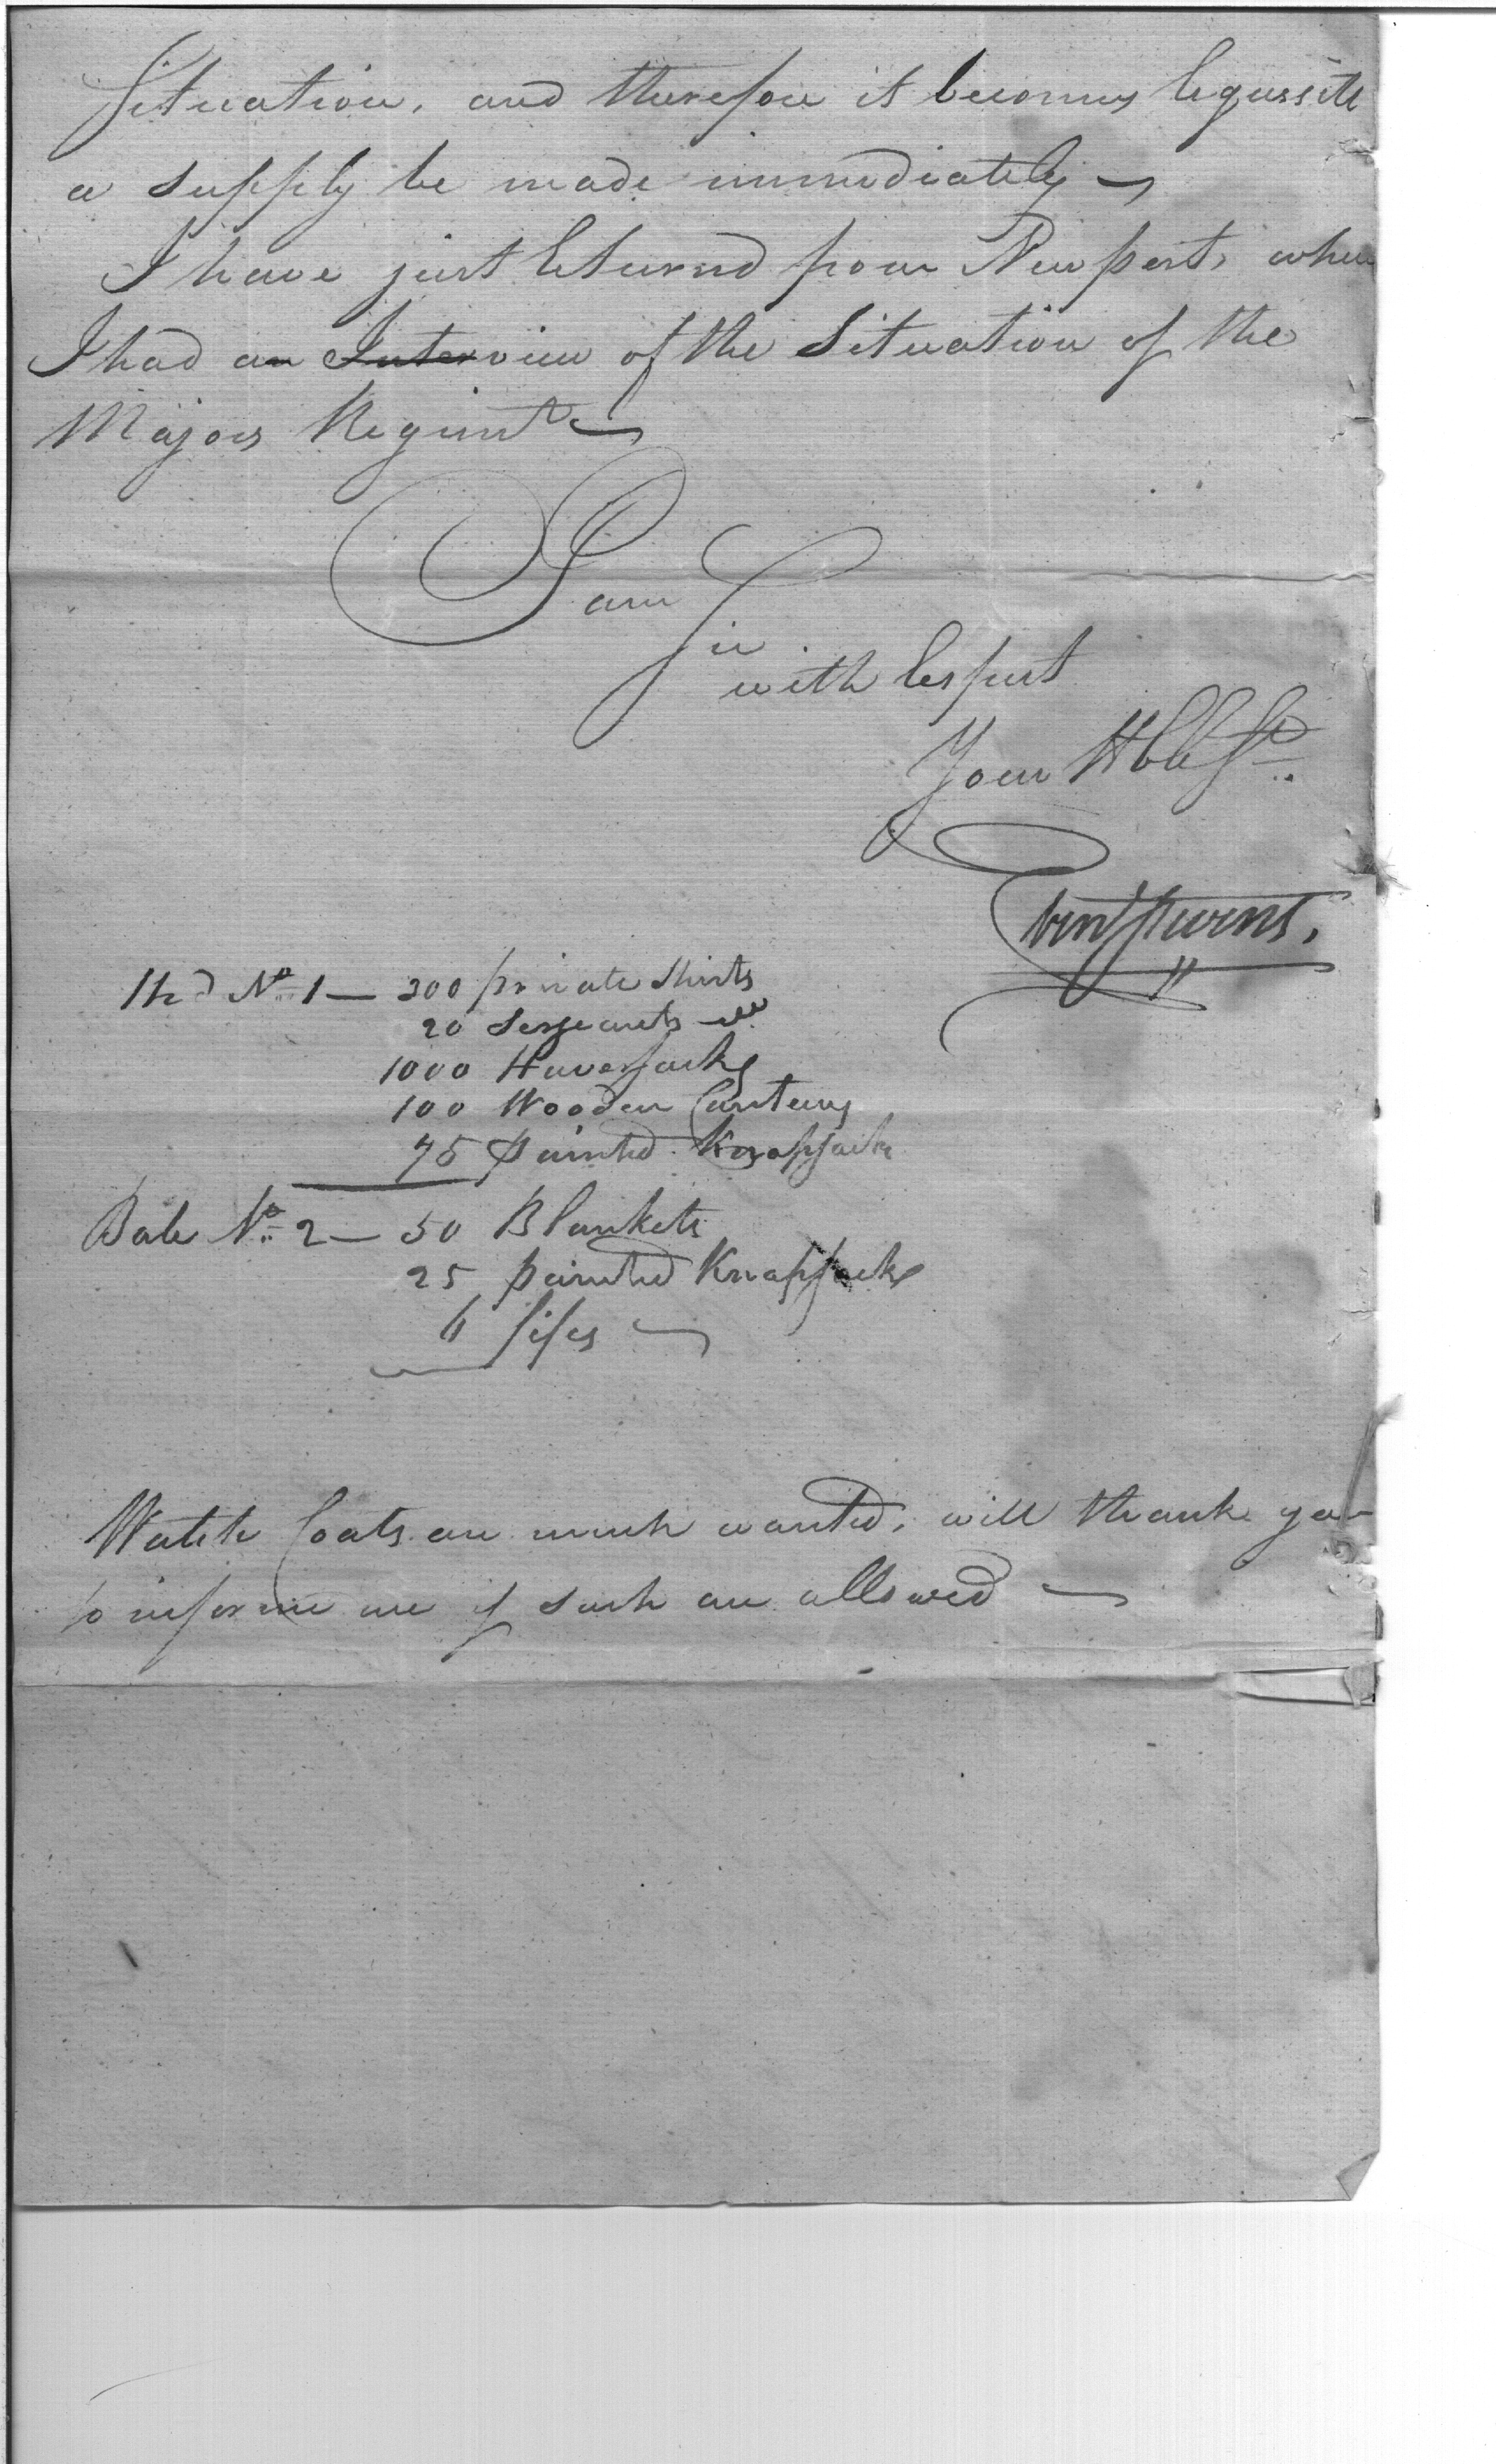 Situation, and therefore it becomes requissite
a supply be made immediately —
I have just returnd from Newport, where
I had an Interview of the Situation of the
Majors Regimt —
I am
Sir
with respect
Your Hble St
Eben Stevens.
Hhd No 1 — 300 private Shirts
20 Sergeants
1000 Haversacks
100 Wooden Canteens
75 painted Knapsacks
Bale No 2 — 50 Blankets
25 painted Knapsacks
6 fifes —
Watch Coats are much wanted, will thank you
to inform me if such are allowed —